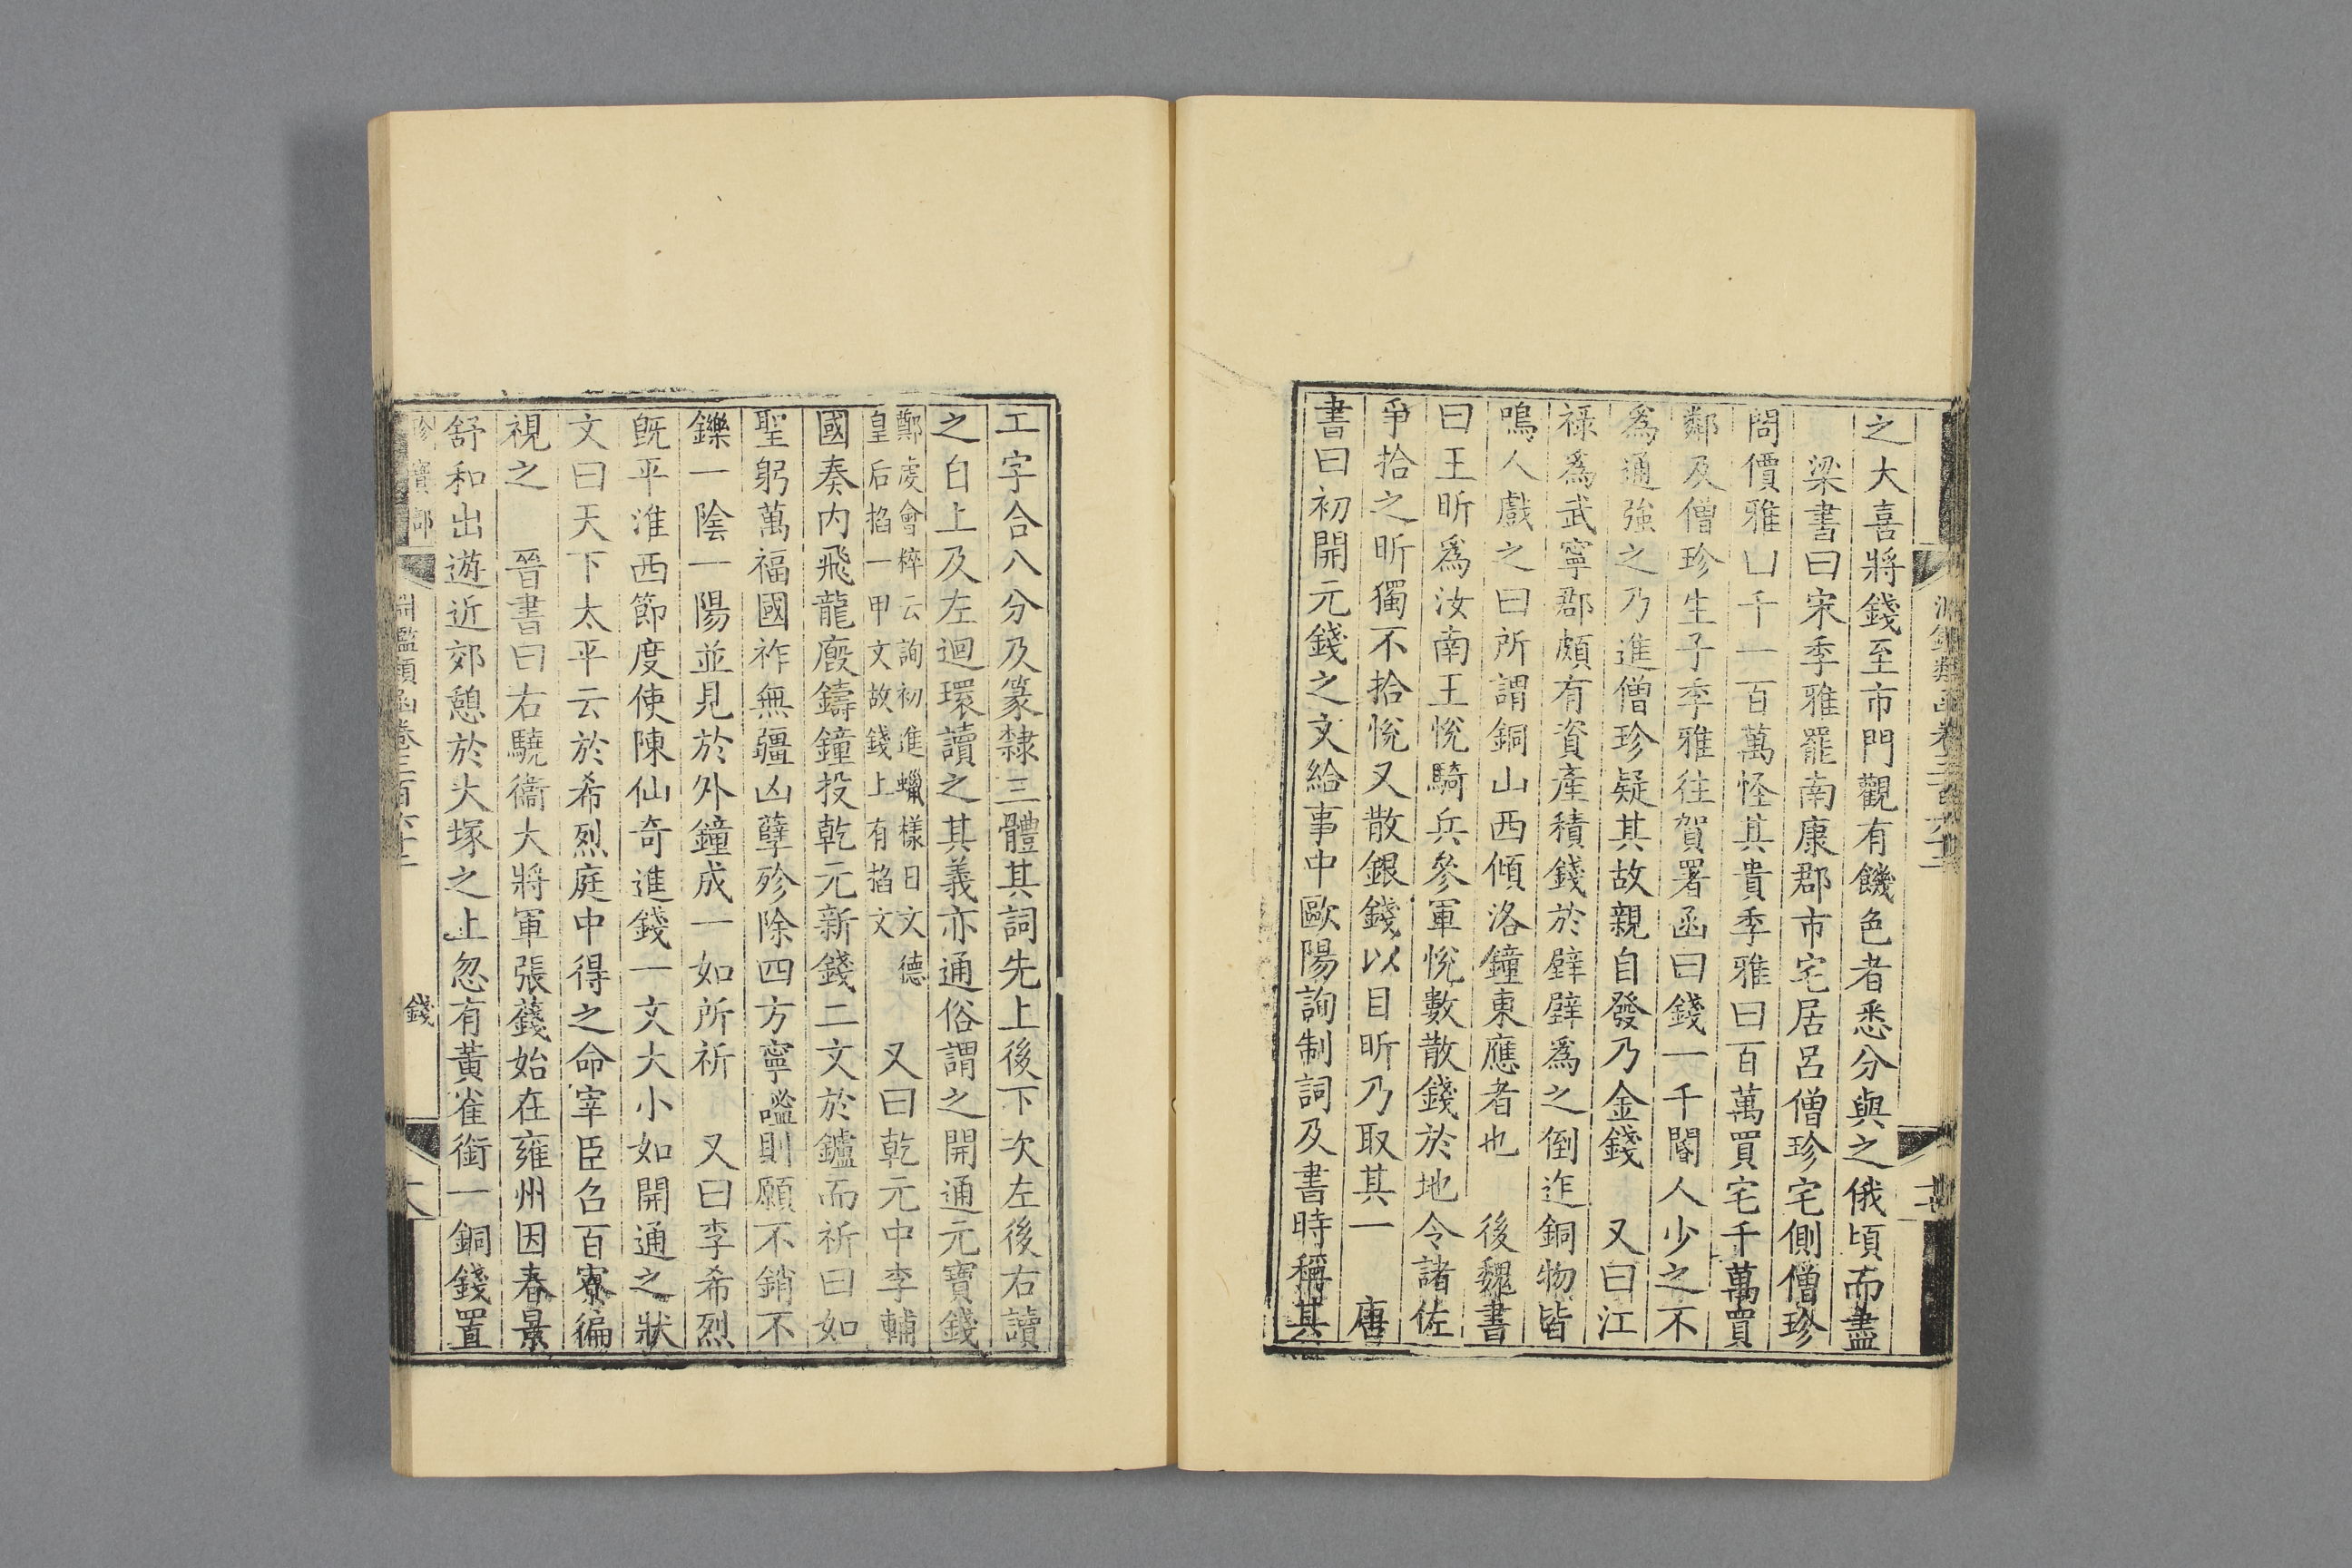 之大喜將錢至市門觀有饑色者悉分與之俄頃而盡
梁書曰宋季雅罷南康郡市宅居呂僧珍宅側僧珍
問價雅曰千一百萬怪其貴季雅曰百萬買宅千萬買
鄰及僧珍生子季雅往賀署函曰錢一千閽人少之不
爲通強之乃進僧珍疑其故親自發乃金錢 又曰江
祿爲武寧郡頗有資產積錢於壁壁爲之倒迮銅物皆
鳴人戲之曰所謂銅山西傾洛鐘東應者也 後魏書
曰王昕爲汝南王悅騎兵參軍悅數散錢於地令諸佐
爭拾之昕獨不拾悅又散銀錢以目昕乃取其一 唐
書曰初開元錢之文給事中歐陽詢制詞及書時稱其
工字合八分及篆隸三體其詞先上後下次左後右讀
之自上及左迴環讀之其義亦通俗謂之開通元寶錢
鄭虔會粹云詢初進蠟樣日文德
皇后掐一甲文故錢上有掐文
又曰乾元中李輔
國奏內飛龍廄鑄鐘投乾元新錢二文於鑪而祈曰如
聖躬萬福國祚無疆凶孽殄除四方寧謐則願不銷不
鑠一陰一陽並見於外鐘成一如所祈 又曰李希烈
既平淮西節度使陳仙奇進錢一文大小如開通之狀
文曰天下太平云於希烈庭中得之命宰臣召百寮徧
視之 晉書曰右驍衞大將軍張籛始在雍州因春景
舒和出遊近郊憩於大塚之上忽有黃雀銜一銅錢置
珍寶部 淵鑑類函卷三百六十二 錢